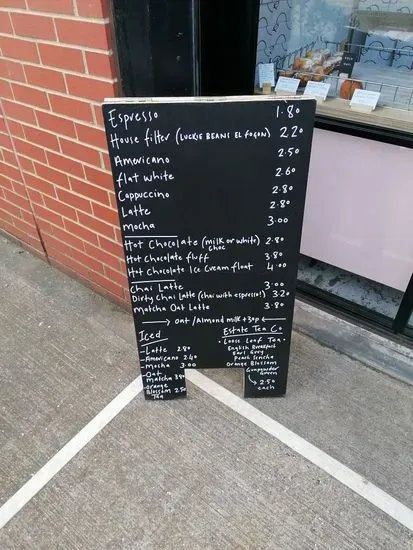 Espresso 1.80
House filter (LUCKIE BEANS EL FOGON) 2.20
Americano 2.50
flat white 2.60
Cappuccino 2.80
Latte 2.80
Mocha 3.00
Hot Chocolate (milk or white choc) 2.80
Hot chocolate fluff 3.80
Hot Chocolate Ice Cream float 4.00
Chai Latte 3.00
Dirty Chai Latte (chai with espresso!) 3.20
Matcha Oat Latte 3.80
→ oat/Almond milk +30p ←
Iced
- Latte 2.80
- Americano 2.40
- Mocha 3.00
- Oat Matcha
- Orange Blossom Tea 2.50
Estate Tea Co
• Loose Leaf Tea •
English Breakfast
Earl Grey
Peach Sencha
Orange Blossom
Gunpowder Green
2.50
each